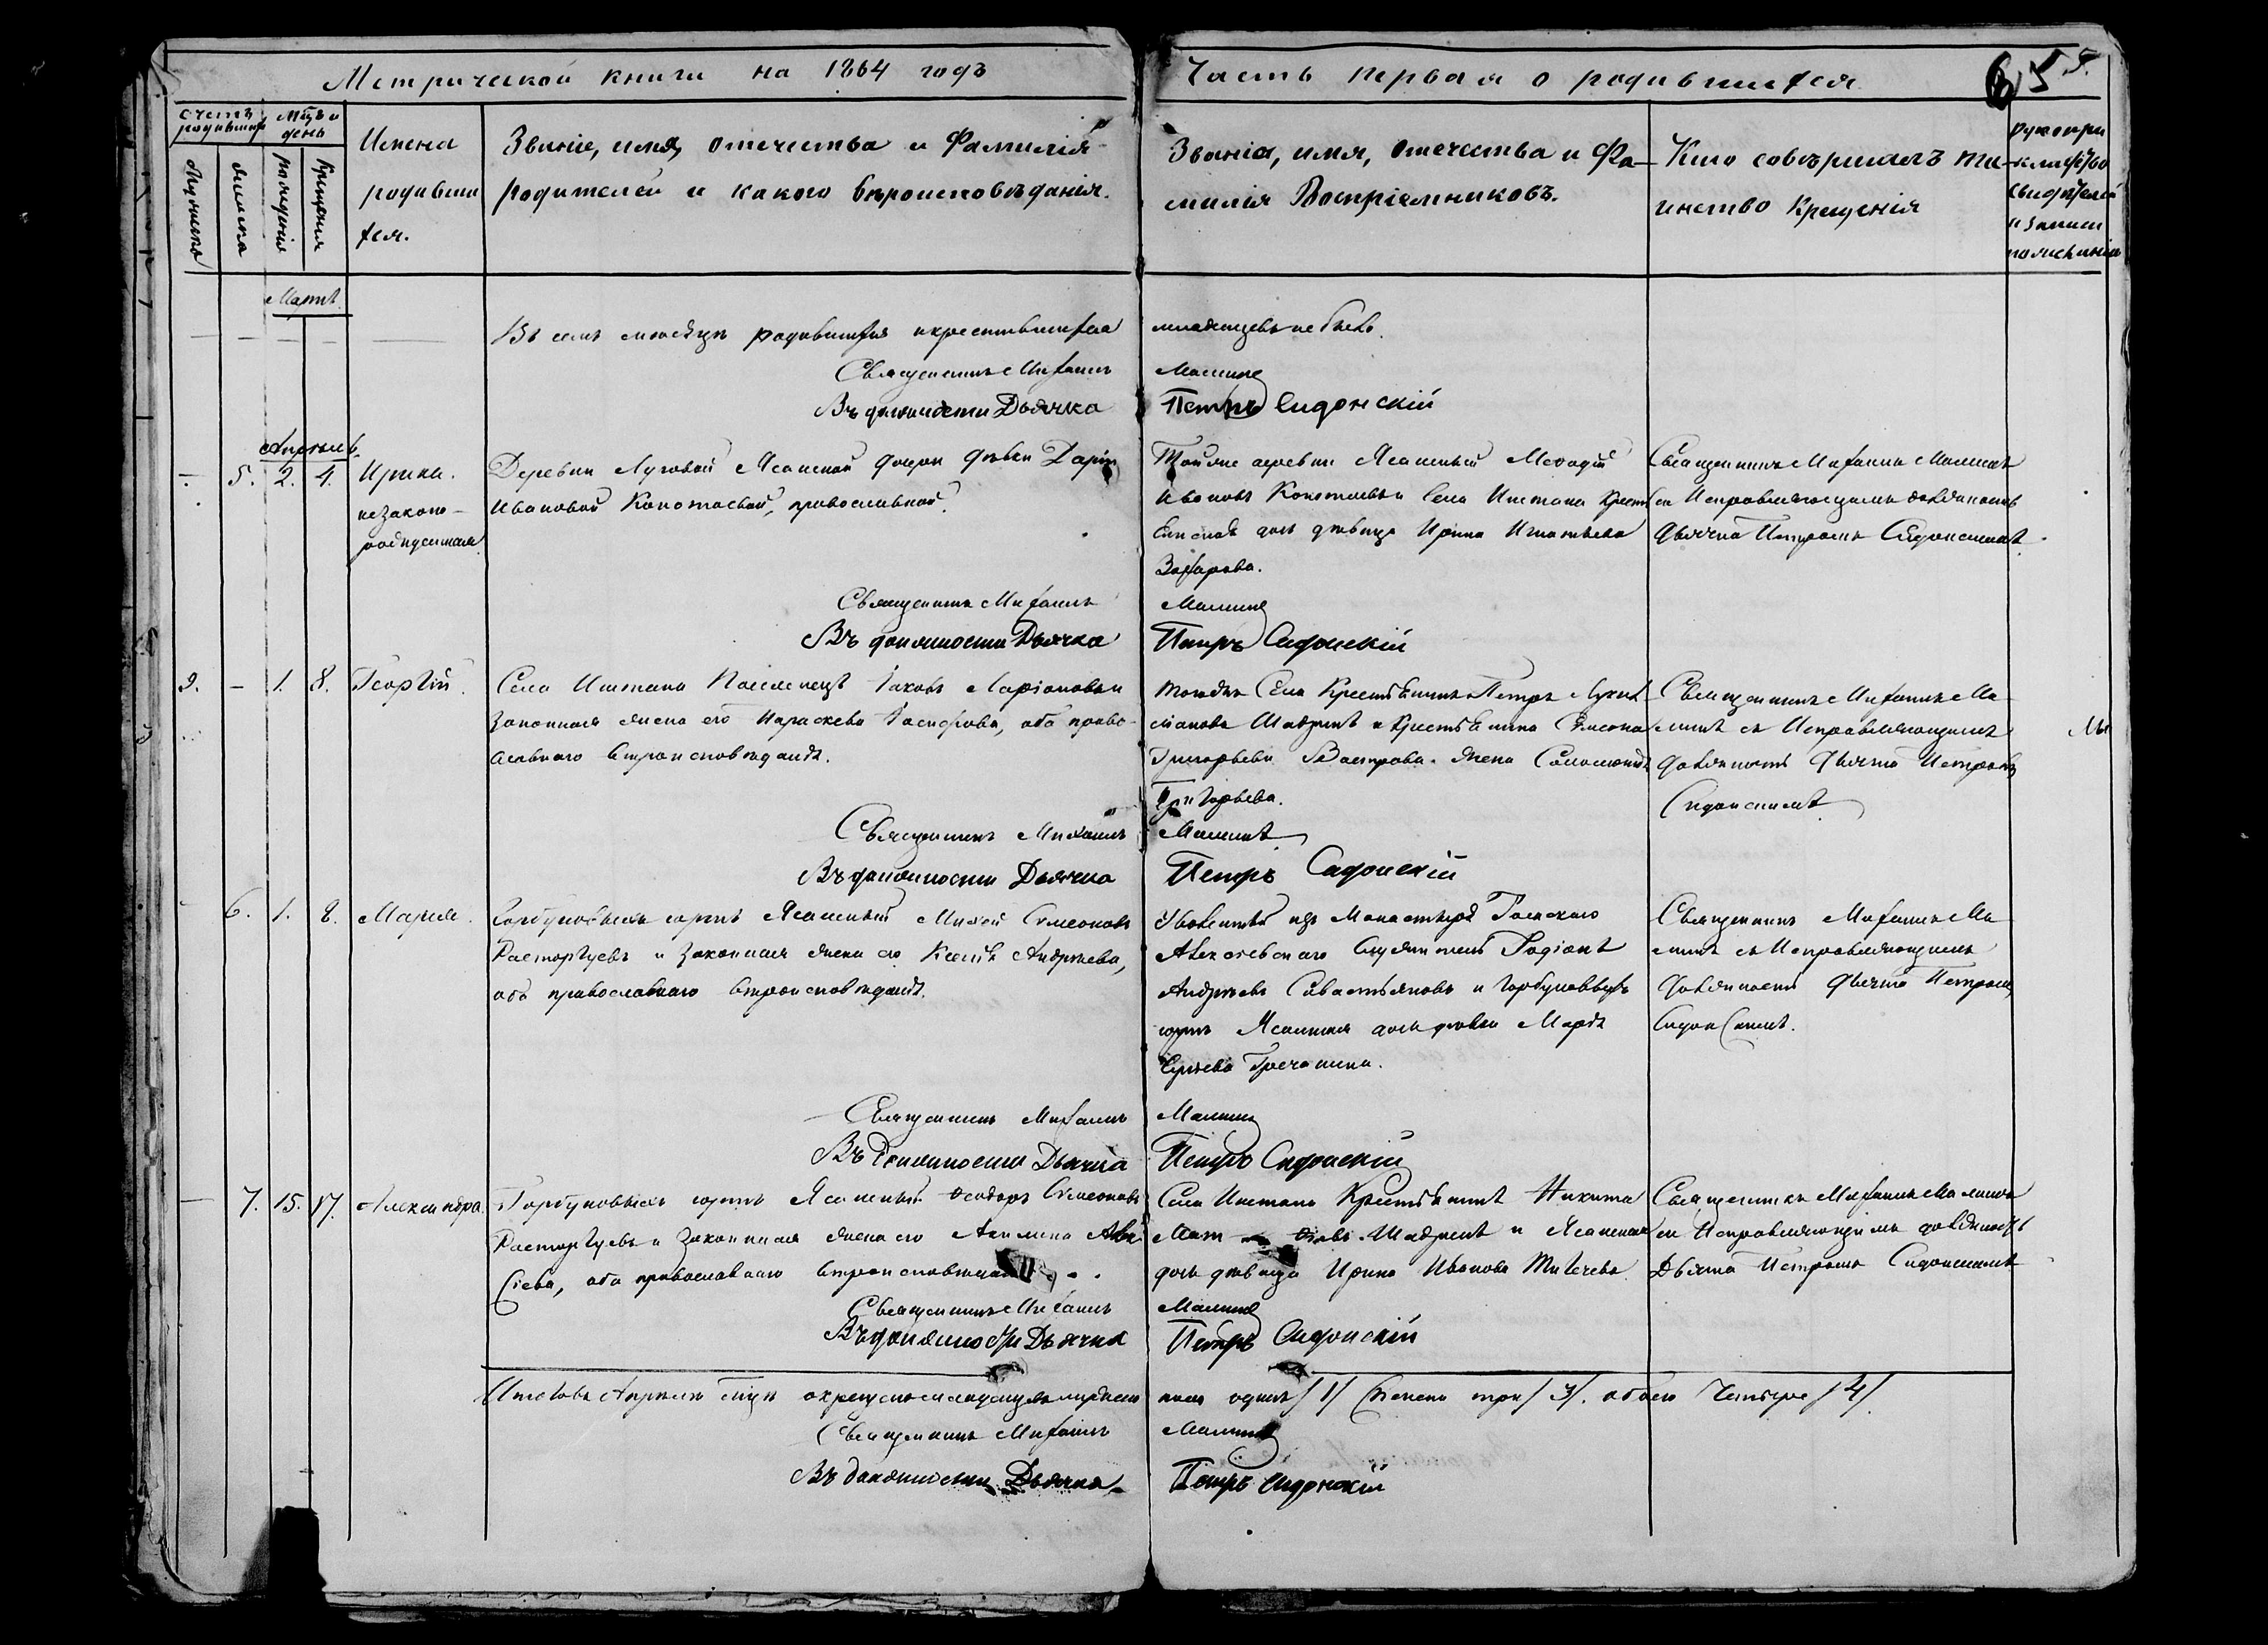 Метрической книги на 1864 годъ
Часть первая о родившихся
65
Счетъ родившихся
Мѣсяцъ и день
мужеска
женска
рожденія
крещенія
Имена
родивши
хся.
Званіе, имя, отечества и Фамилія
родителей и какого вѣроисповѣданія.
Званіе, имя, отечества и Фа-
милія Воспріемниковъ.
Кто совершалъ та-
инство Крещенія
рукопри
записи
Мартъ
Въ семъ мѣсяцѣ родившихся и крестившихся
младенцевъ не было.
Священникъ Михаилъ
Малинъ
Въ должности Дьячка
Петръ Сидонскій
Апрѣль
5. 2. 4. Ирина.
незаконо-
рожденная
Деревни Луговой Ясашной дочери дѣвки Дарьи
Ивановой Конотаевой, православной.
Тойже деревни Ясашный Меѳодій
Ивановъ Конотаевъ и Села Иштана Крест
дочь дѣвица Ирина Игнатьева
Захарова.
Священникъ Михаилъ Малинъ
съ Исправляющимъ должность
Дьячка Петромъ Сидонскимъ.
Священникъ Михаилъ
Малинъ
Въ должности Дьячка
Петръ Сидонскій
9. – 1. 8. Георгій.
Села Иштана Поселенецъ Іаковъ Ларіоновъ и
Законная жена его Параскева Іосифова, оба право-
славнаго вѣроисповѣданія.
Тогожъ Села Крестьянинъ Петръ
Шадринъ и Крестьянина Симона
Григорьева Вострова жена Соломонія
Григорьева.
Священникъ Михаилъ Ма
линъ съ Исправляющимъ
должность Дьячка Петромъ
Сидонскимъ
Священникъ Михаилъ
Малинъ
Въ должности Дьячка
Петръ Сидонскій
6. 1. 8. Марія.
Горбуновыхъ юртъ Ясашный Михей Симеоновъ
Расторгуевъ и Законная жена его Ксенія Андреева,
оба православнаго вѣроисповѣданія.
изъ Монастыря Томскаго
Алексѣевскаго Родіонъ
Андреевъ Савастьяновъ и Горбуновыхъ
юртъ Ясашная дочь дѣвка Марѳа
Гречанина.
Священникъ Михаилъ Ма
линъ съ Исправляющимъ
должность Дьячка Петромъ
Сидонскимъ.
Священникъ Михаилъ
Малинъ
Въ должности Дьячка
Петръ Сидонскій
7. 15. 17. Александра.
Горбуновыхъ юртъ Ясашный Ѳеодоръ Симеоновъ
Расторгуевъ и Законная жена его Акилина
оба православнаго вѣроисповѣданія
Села Иштана Крестьянинъ Никита
Шадринъ и Ясашная
дочь дѣвица Ирина Иванова
Священникъ Михаилъ Малинъ
съ Исправляющимъ должность
Дьячка Петромъ Сидонскимъ
Священникъ Михаилъ
Малинъ
Въ должности Дьячка
Петръ Сидонскій
Итого въ Апрѣлѣ окрещено младенцевъ мужеска
пола одинъ /1/ женска три /3/. обоего Четыре /4/.
Священникъ Михаилъ
Малинъ
Въ должности Дьячка
Петръ Сидонскій